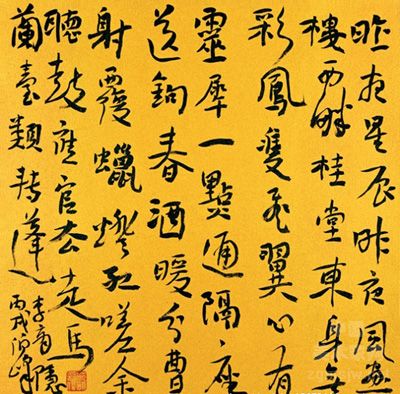 昨夜星辰昨夜風畫
樓西畔桂堂東身無
彩鳳雙飛翼心有
靈犀一點通隔座
送鉤春酒暖分曹
射覆蠟燈紅嗟余
聽鼓應官去走馬
蘭臺類轉蓬
李商隱
丙戌